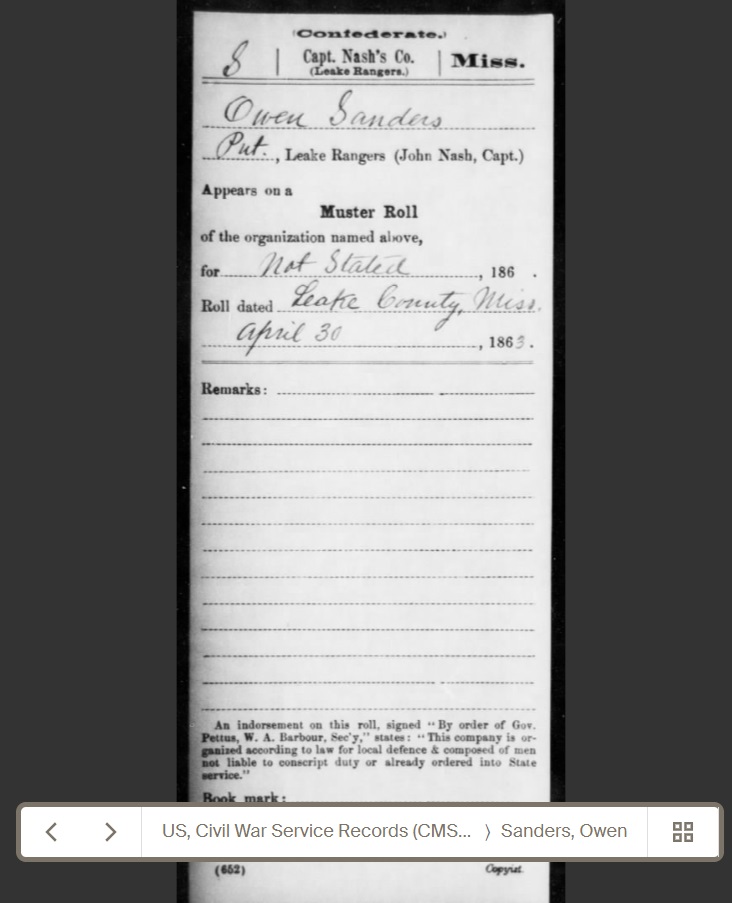 (Confederate.)
S | Capt. Nash's Co. | Miss.
(Leake Rangers.)
Owen Sanders
Pvt., Leake Rangers (John Nash, Capt.)
Appears on a
Muster Roll
of the organization named above,
for Not Stated, 186 .
Roll dated Leake County, Miss.
April 30, 1863.
Remarks:
An indorsement on this roll, signed "By order of Gov.
Pettus, W. A. Barbour, Sec'y," states: "This company is or-
ganized according to law for local defence & composed of men
not liable to conscript duty or already ordered into State
service."
Book mark:
US, Civil War Service Records (CMS... ⟩ Sanders, Owen
(652) Copyist.